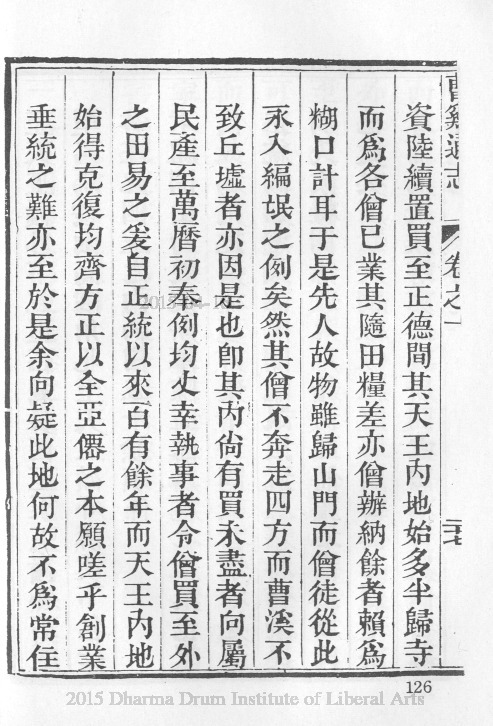 曹谿通志 卷之一 二十七
資陸續置買至正德間其天王內地始多半歸寺
而爲各僧已業其隨田糧差亦僧辦納餘者賴爲
糊口計耳于是先人故物雖歸山門而僧徒從此
永入編氓之例矣然其僧不奔走四方而曹溪不
致丘墟者亦因是也卽其內尙有買未盡者向屬
民產至萬曆初奉例均丈幸執事者令僧買至外
之田易之爰自正統以來百有餘年而天王內地
始得克復均齊方正以全亞僊之本願嗟乎創業
垂統之難亦至於是余向疑此地何故不爲常住
126
2015 Dharma Drum Institute of Liberal Arts